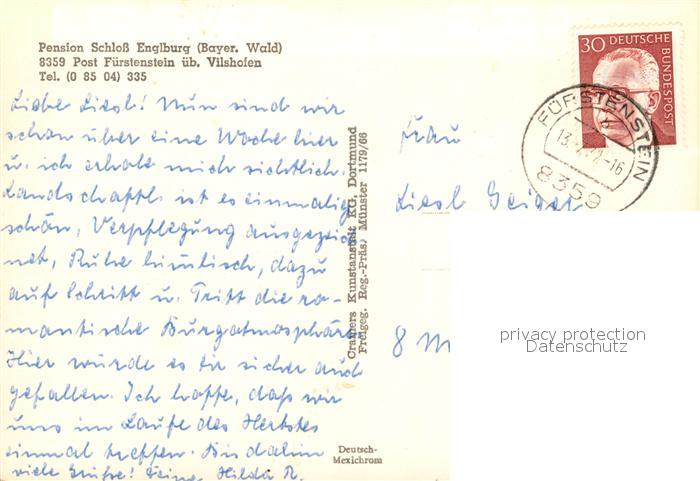 Pension Schloß Englburg (Bayer. Wald)
8359 Post Fürstenstein üb. Vilshofen
Tel. (0 85 04) 335
Liebe Liesl! Nun sind wir
schon über eine Woche hier
u. ich erhole mich sichtlich.
Landschaftl. ist es einmalig
schön, Verpflegung ausgezeich
net, Ruhe himmlisch, dazu
auf Schritt u. Tritt die ro-
mantische Burgatmosphäre.
Hier würde es Dir sicher auch
gefallen. Ich hoffe, daß wir
uns im Laufe des Herbstes
einmal treffen. Bis dahin
viele Grüße! Deine Hilda R.
Cramers Kunstanstalt KG, Dortmund
Freigeg. Reg.-Präs. Münster 1179/66
Deutsch-
Mexichrom
30 DEUTSCHE
BUNDESPOST
FÜRSTENSTEIN
-16
8359
Frau
Liesl Geiger
8 M
privacy protection
Datenschutz